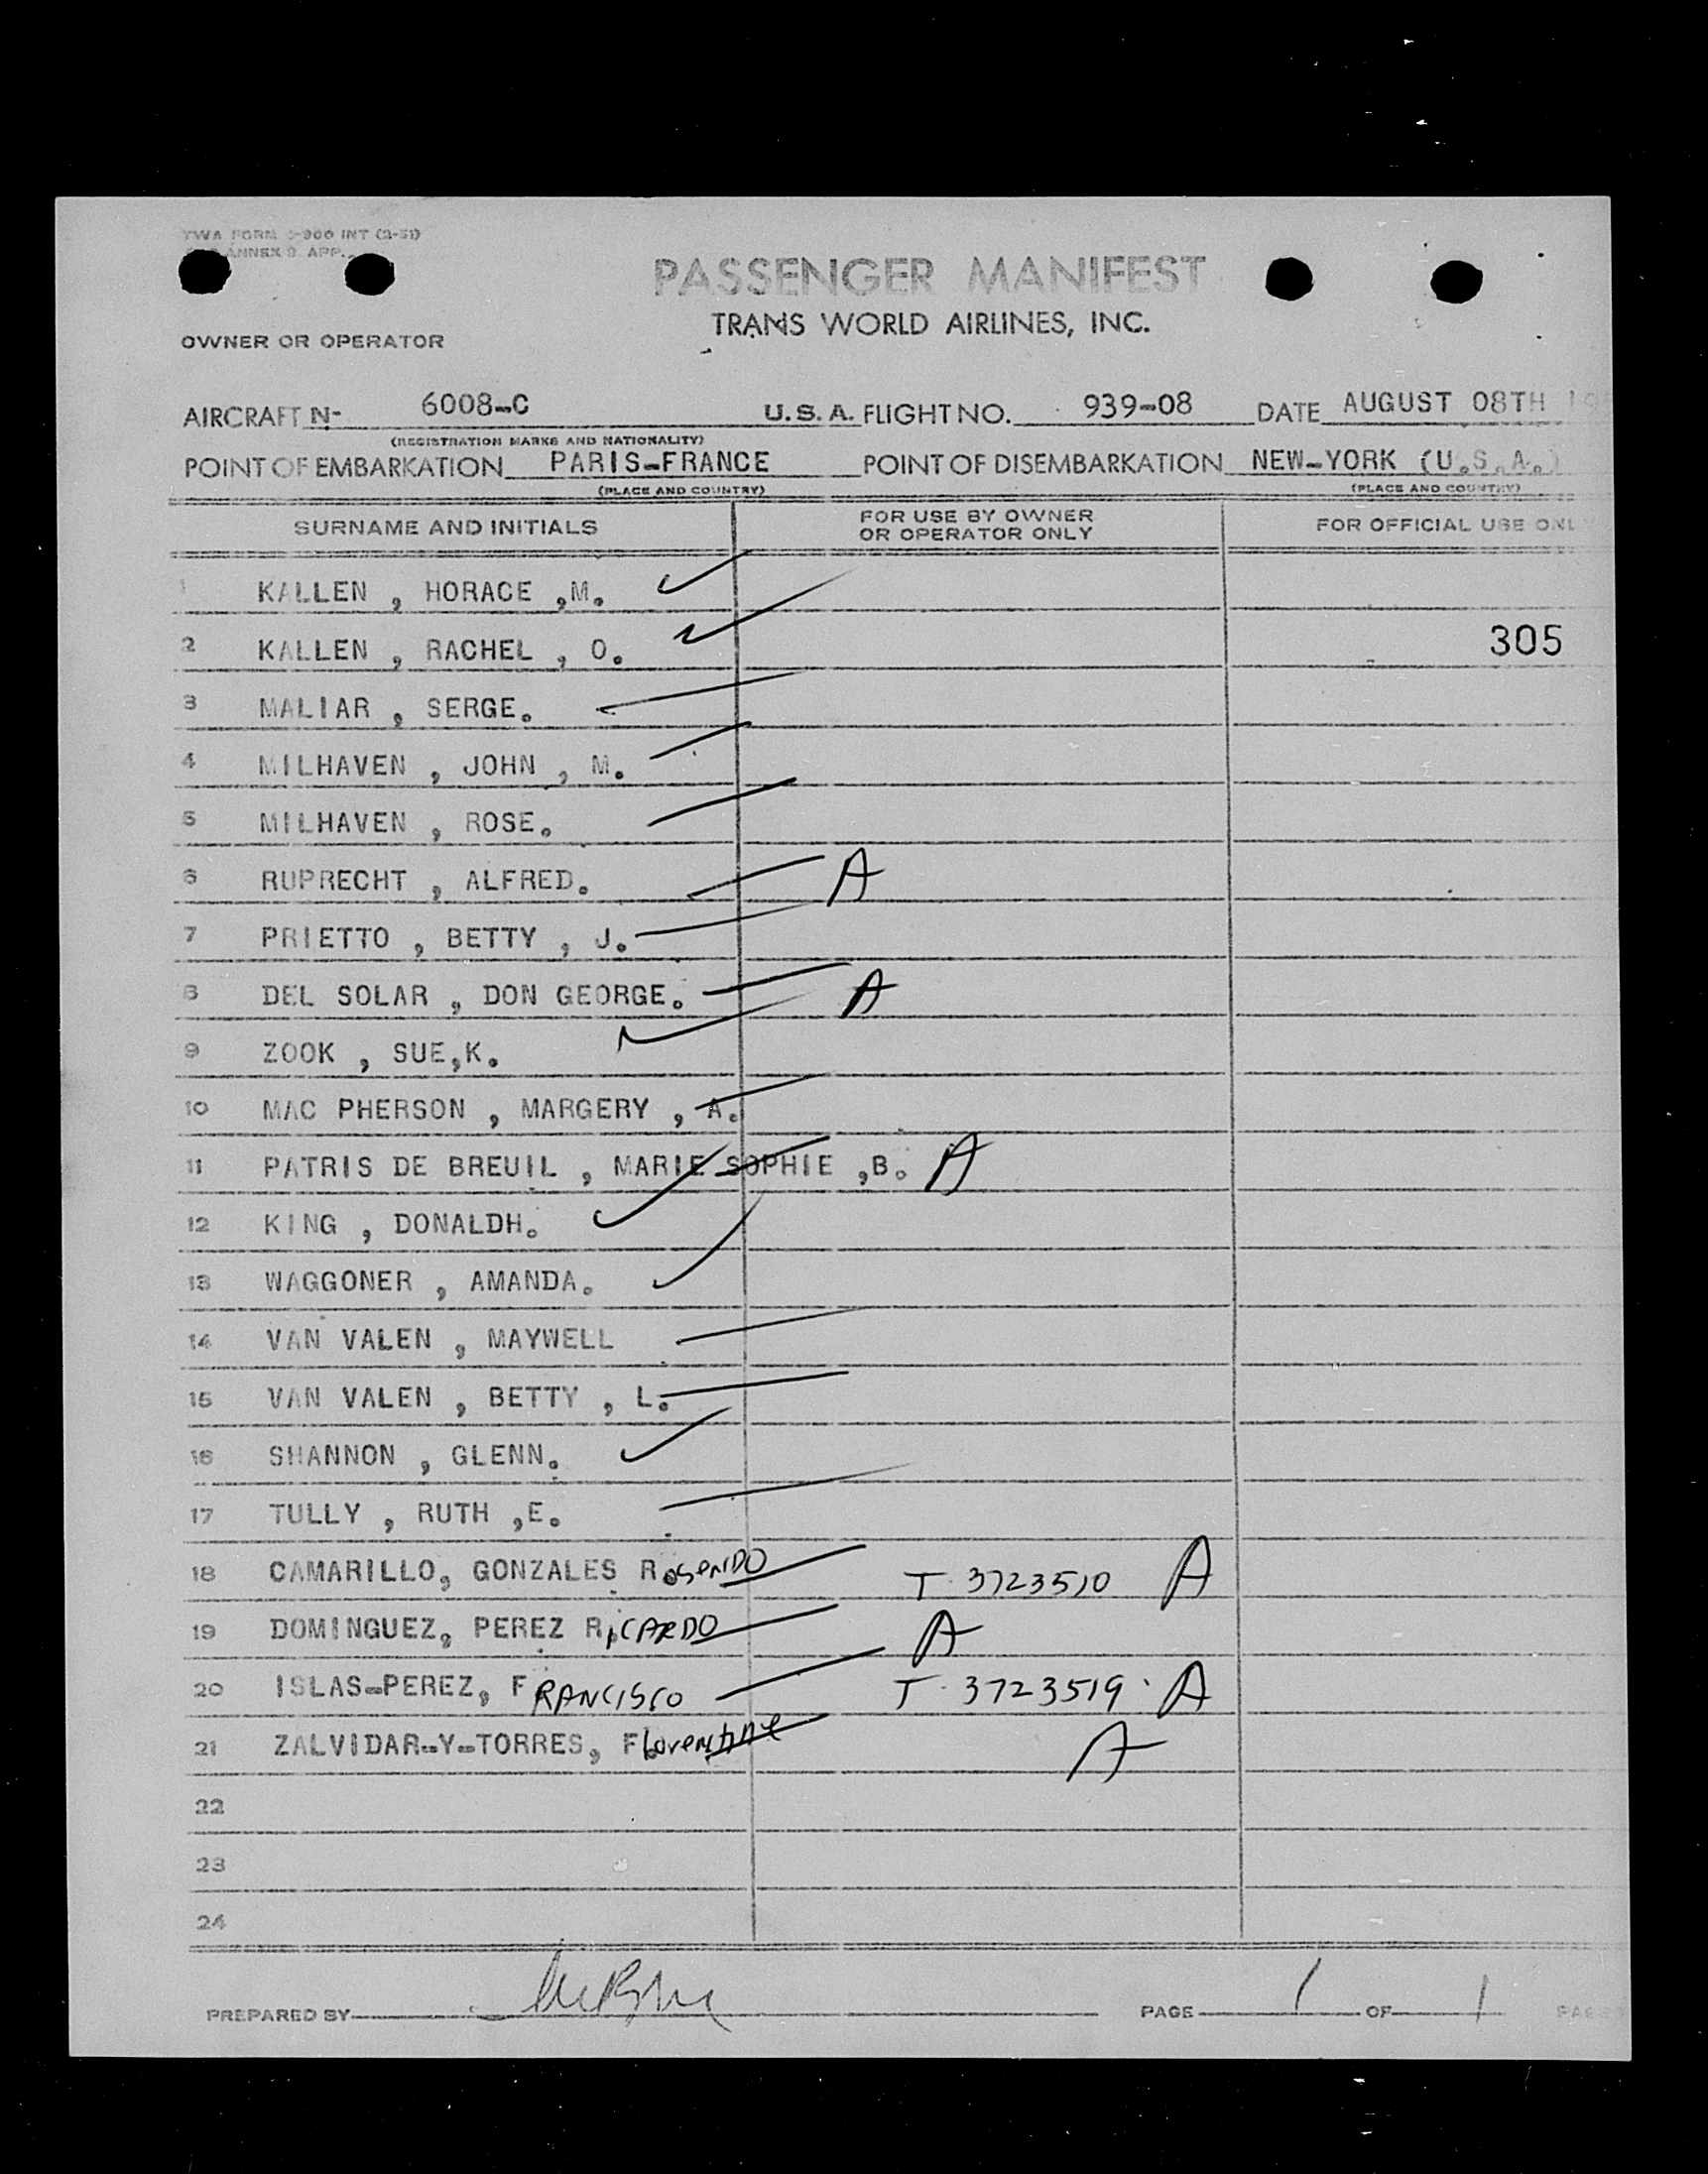 TWA FORM -900 INT (2-51)
ANNEX 9 APP.
PASSENGER MANIFEST
TRANS WORLD AIRLINES, INC.
OWNER OR OPERATOR
AIRCRAFT N- 6008-C U.S.A. FLIGHT NO. 939-08 DATE AUGUST 08TH
(REGISTRATION MARKS AND NATIONALITY)
POINT OF EMBARKATION PARIS-FRANCE POINT OF DISEMBARKATION NEW-YORK (U.S.A.)
(PLACE AND COUNTRY) (PLACE AND COUNTRY)
SURNAME AND INITIALS FOR USE BY OWNER OR OPERATOR ONLY FOR OFFICIAL USE ONL
1 KALLEN , HORACE ,M.
2 KALLEN , RACHEL , O. 305
3 MALIAR , SERGE.
4 MILHAVEN , JOHN , M.
5 MILHAVEN , ROSE.
6 RUPRECHT , ALFRED. A
7 PRIETTO , BETTY , J.
8 DEL SOLAR , DON GEORGE. A
9 ZOOK , SUE,K.
10 MAC PHERSON , MARGERY , A.
11 PATRIS DE BREUIL , MARIE SOPHIE ,B. A
12 KING , DONALDH.
13 WAGGONER , AMANDA.
14 VAN VALEN , MAYWELL
15 VAN VALEN , BETTY , L.
16 SHANNON , GLENN.
17 TULLY , RUTH ,E.
18 CAMARILLO, GONZALES ROSENDO T 3723510 A
19 DOMINGUEZ, PEREZ RICARDO A
20 ISLAS-PEREZ, FRANCISCO T 3723519 A
21 ZALVIDAR-Y-TORRES, A
22
23
24
PREPARED BY PAGE 1 OF 1